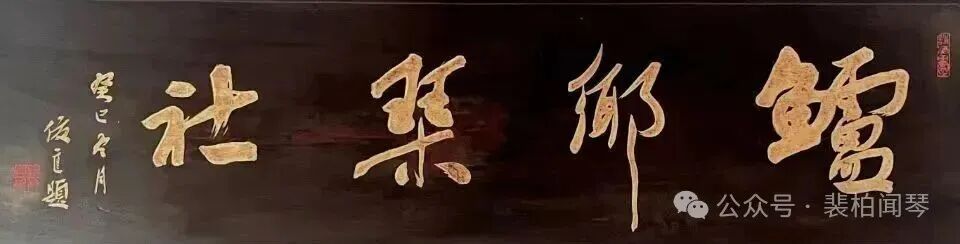 鱸鄉琹社
癸巳冬月
俊彥題
公众号·裴柏闻琴